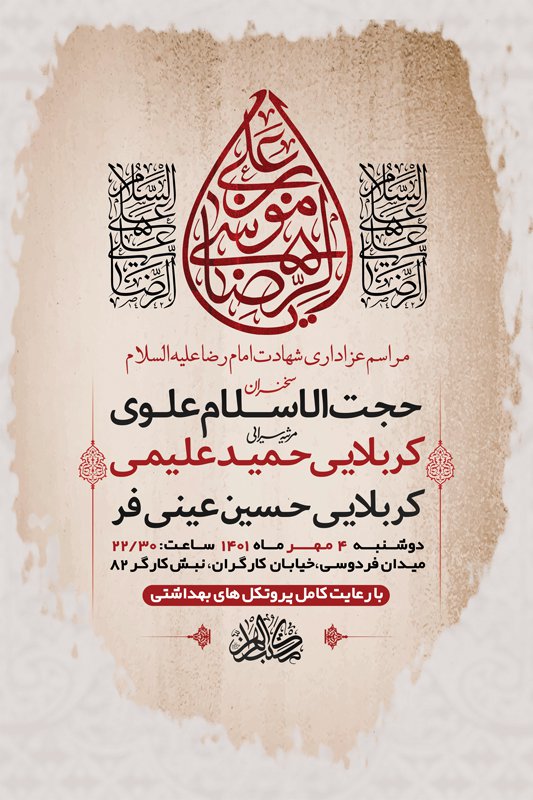 علی بن موسی الرضا
السلام علیک یا علی بن موسی الرضا
مراسم عزاداری شهادت امام رضا علیه السلام
سخنران
حجت الاسلام علوی
مرثیه سرایی
کربلایی حمید علیمی
کربلایی حسین عینی فر
دوشنبه ۴ مهر ماه ۱۴۰۱ ساعت: ۲۲/۳۰
میدان فردوسی،خیابان کارگران، نبش کارگر ۸۲
با رعایت کامل پروتکل های بهداشتی